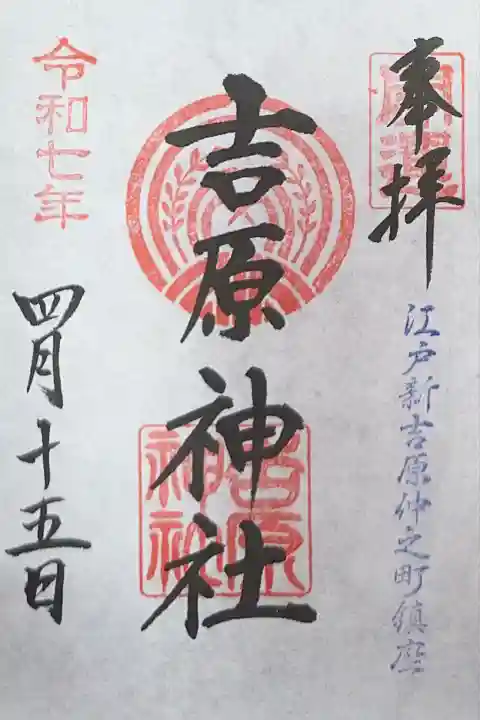 奉拝
江戸新吉原仲之町鎮座
吉原神社
吉原神社
令和七年
四月十五日